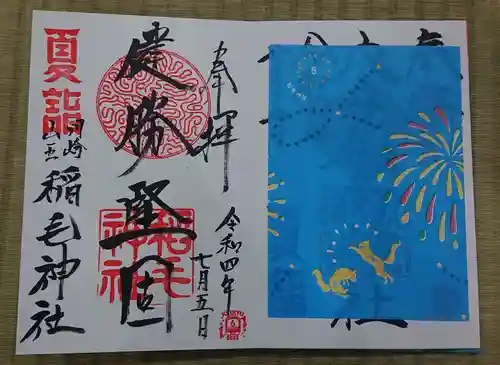 奉拝
令和四年
七月五日
慶勝堅固
稲毛神社
夏詣
川崎
山王
稲毛神社